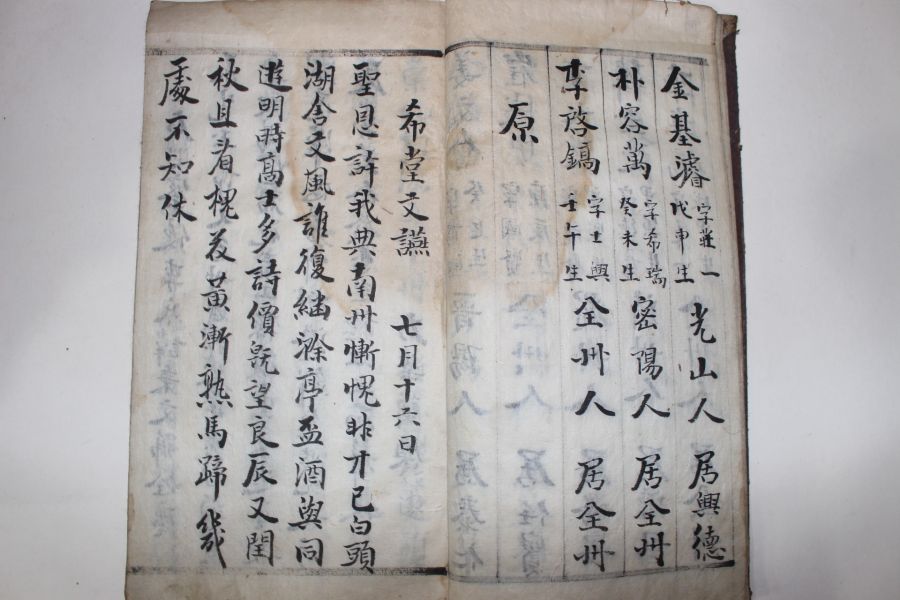 金基濬 字莊一 戊申生 光山人 居興德
朴容萬 字希瑞 癸未生 密陽人 居全州
李啓鎬 字士興 壬午生 全州人 居全州
原
希堂文讌 七月十六日
聖恩許我典南州慚愧非才已白頭
湖舍文風誰復繼滁亭盃酒與同
遊明時高士多詩價旣望良辰又閏
秋且看槐花黃漸熟馬蹄幾
處不知休